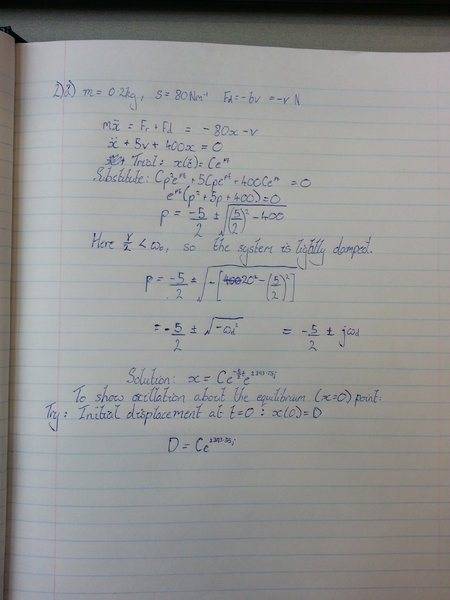 2)a) m = 0.2kg, s = 80Nm⁻¹ Fd = -bv = -v N
mẍ = Fr + Fd = -80x - v
ẍ + 5v + 400x = 0
Trial: x(t) = Ce^pt
Substitute: Cp²e^pt + 5Cpe^pt + 400Ce^pt = 0
e^pt(p² + 5p + 400) = 0
p = -5/2 ± √((5/2)² - 400)
Here γ/2 < ω₀, so the system is lightly damped.
p = -5/2 ± √(-[20² - (5/2)²])
= -5/2 ± √(-ωd²) = -5/2 ± jωd
Solution: x = Ce e
To show oscillation about the equilibrium (x=0) point:
Try: Initial displacement at t=0 : x(0) = D
D = Ce